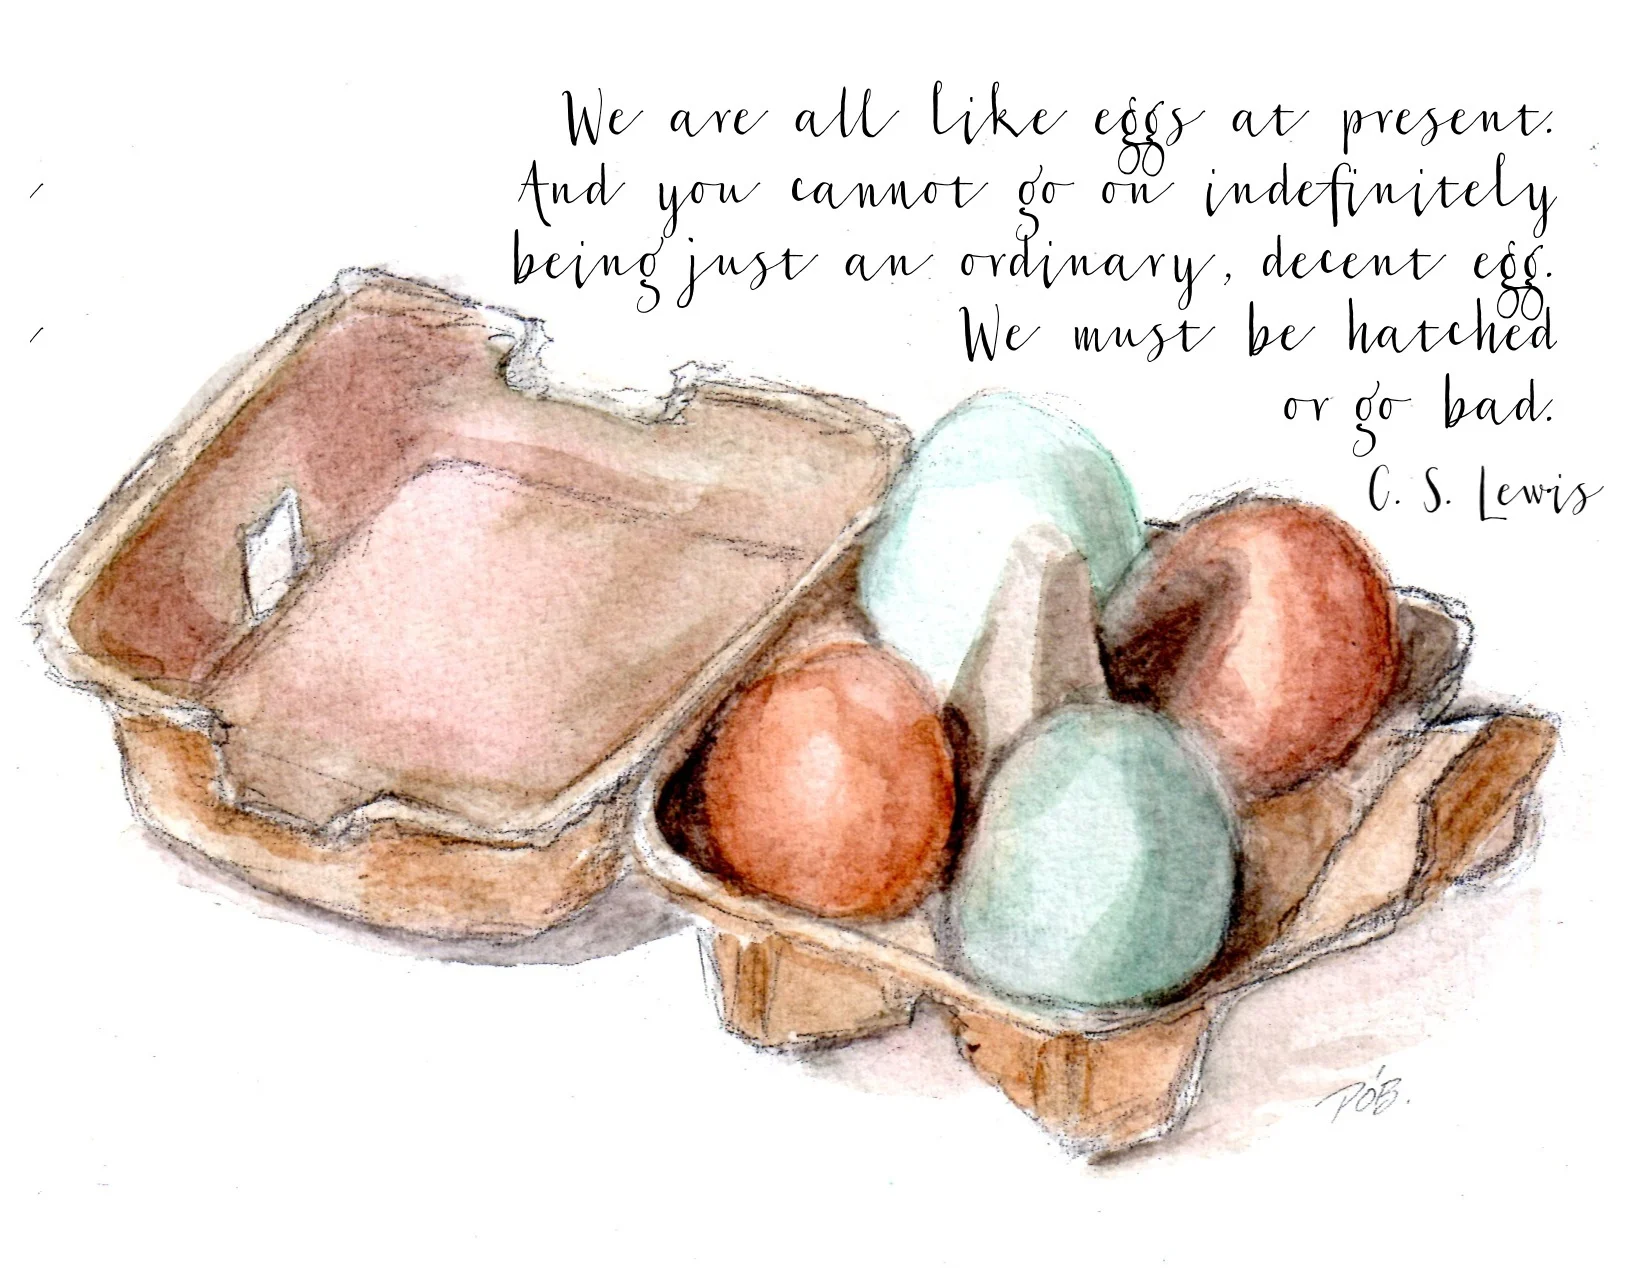 We are all like eggs at present.
And you cannot go on indefinitely
being just an ordinary, decent egg.
We must be hatched
or go bad.
C. S. Lewis
PÓB.